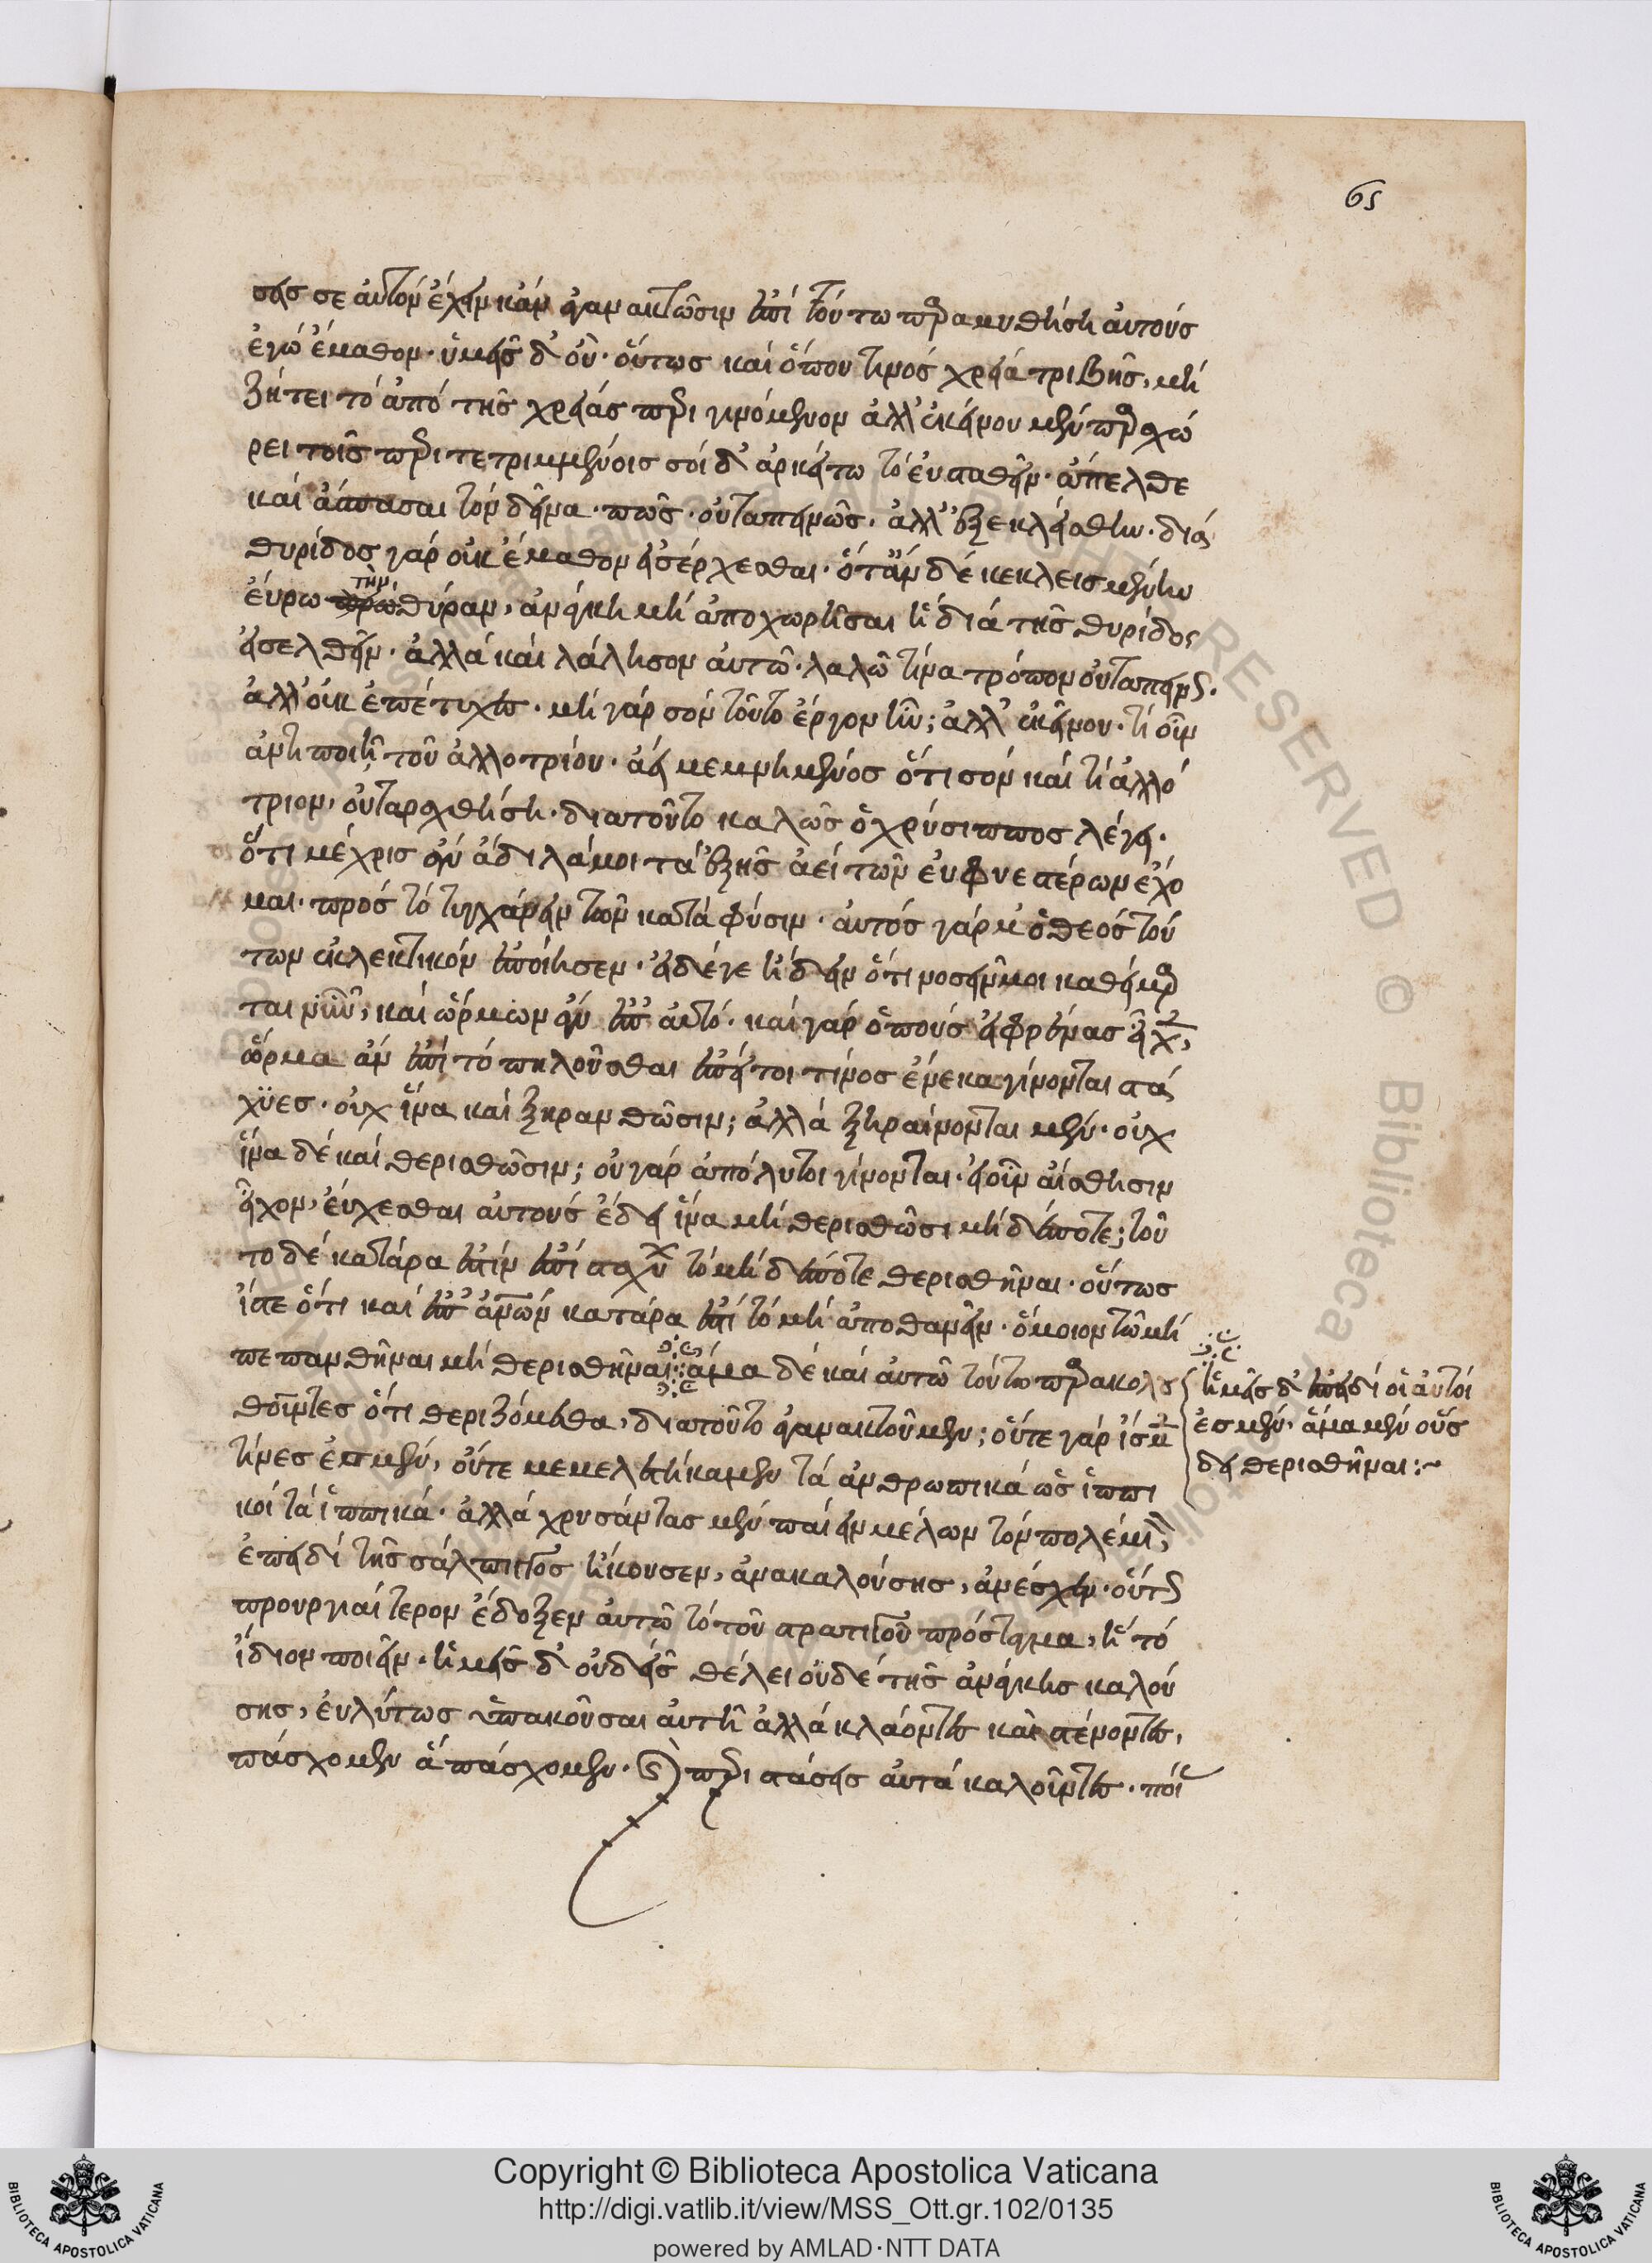 65
σεις σεαυτὸν ἔχειν κἂν ἀγανακτῶσιν ἐπὶ τούτω παραμυθήση αὐτοὺς
ἐγὼ ἔμαθον· ὑμεῖς δ' οὔ· οὕτως καὶ ὅπου τινὸς χρεία τριβῆς, μὴ
ζήτει τὸ ἀπὸ τῆς χρείας περιγινόμενον ἀλλ' ἐκείνου μὲν παραχώ
ρει τοῖς περιτετριμμένοις σοὶ δ' ἀρκείτω τὸ εὐσταθεῖν· ἄπελθε
καὶ ἄσπασαι τὸν δεῖνα· πῶς· οὐ ταπεινῶς· ἀλλ' ἐξεκλείσθην· διὰ
θυρίδος γὰρ οὐκ ἔμαθον εἰσέρχεσθαι· ὅταν δὲ κεκλεισμένην
εὕρω τὴν θύραν, ἀνάγκη μὴ ἀποχωρῆσαι ἢ διὰ τῆς θυρίδος
εἰσελθεῖν· ἀλλὰ καὶ λάλησον αὐτῶ· λαλῶ τίνα τρόπον οὐ ταπεινῶς·
ἀλλ' οὐκ ἐπέτυχες· μὴ γὰρ σὸν τοῦτο ἔργον ἦν; ἀλλ' ἐκείνου· τί οὖν
ἀντιποιῆ τοῦ ἀλλοτρίου· ἀεὶ μεμνημένος ὅτι σὸν καὶ τί ἀλλό
τριον, οὐ ταραχθήση· διατοῦτο καλῶς ὁ χρύσιππος λέγει·
ὅτι μέχρις ἂν ἄδηλά μοι τὰ ἑξῆς ἀεὶ τῶν εὐφυεστέρων ἔχο
μαι· πρὸς τὸ τυγχάνειν τῶν κατὰ φύσιν· αὐτὸς γάρ μ' ὁ θεὸς τού
των ἐκλεκτικὸν ἐποίησεν· εἰ δέ γε ἤδειν ὅτι νοσεῖν μοι καθείμαρ
ται νῦν, καὶ ὥρμων ἂν ἐπ' αὐτό· καὶ γὰρ ὁ ποὺς εἰ φρένας εἶχεν,
ὥρμα ἂν ἐπὶ τὸ πηλοῦσθαι ἐπεί τοι τίνος ἕνεκα γίνονται στά
χυες· οὐχ ἵνα καὶ ξηρανθῶσιν; ἀλλὰ ξηραίνονται μέν· οὐχ
ἵνα δὲ καὶ θερισθῶσιν; οὐ γὰρ ἀπόλυτοι γίνονται· εἰ οὖν αἴσθησιν
εἶχον, εὔχεσθαι αὐτοὺς ἔδει ἵνα μὴ θερισθῶσι μηδέποτε; τοῦ
το δὲ κατάρα ἐστὶν ἐπὶ σταχύων τὸ μηδέποτε θερισθῆναι· οὕτως
ἴστε ὅτι καὶ ἐπ' ἀνθρώπων κατάρα ἐστὶ τὸ μὴ ἀποθανεῖν· ὅμοιον τῶ μὴ
πεπανθῆναι μὴ θερισθῆναι: ἅμα δὲ καὶ αὐτῶ τούτω παρακολου
θοῦντες ὅτι θεριζόμεθα, διατοῦτο ἀγανακτοῦμεν; οὔτε γὰρ ἴσμεν
τίνες ἐσμέν, οὔτε μεμελετήκαμεν τὰ ἀνθρωπικὰ ὡς ἱππι
κοὶ τὰ ἱππικά· ἀλλὰ χρυσάντας μὲν παίειν μέλλων τὸν πολέμιον,
ἐπειδὴ τῆς σάλπιγγος ἤκουσεν, ἀνακαλούσης, ἀνέσχεν· οὕτως
προυργιαίτερον ἔδοξεν αὐτῶ τὸ τοῦ στρατηγοῦ πρόσταγμα, ἢ τὸ
ἴδιον ποιεῖν· ἡμεῖς δ' οὐδεὶς θέλει οὐδὲ τῆς ἀνάγκης καλού
σης, εὐλύτως ὑπακοῦσαι αὐτῆ ἀλλὰ κλάοντες καὶ στένοντες,
πάσχομεν ἃ πάσχομεν· περιστάσεις αὐτὰ καλοῦντες· ποί
ἡμεῖς δ' ἐπειδὴ οἱ αὐτοί
ἐσμέν, ἅμα μὲν οὓς
δεῖ θερισθῆναι:~
Copyright © Biblioteca Apostolica Vaticana
http://digi.vatlib.it/view/MSS_Ott.gr.102/0135
powered by AMLAD·NTT DATA